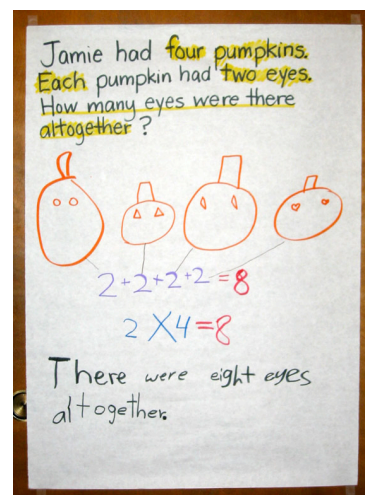 Jamie had four pumpkins.
Each pumpkin had two eyes.
How many eyes were there
altogether?
2+2+2+2=8
2X4=8
There were eight eyes
altogether.